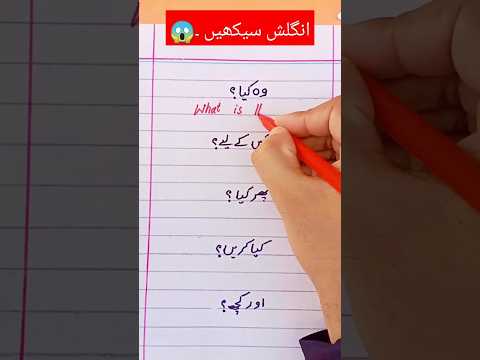 انگلش سیکھیں ۔😱
وہ کیا ؟
What is
کس کے لیے ؟
پھر کیا ؟
کیا کریں ؟
اور کچھ ؟